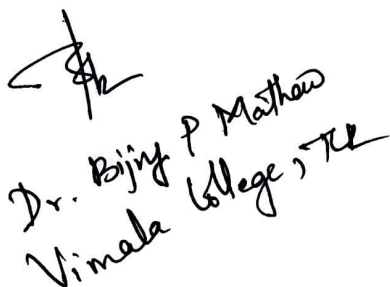 Dr. Bijiny P Mathew
Vimala College, TCR